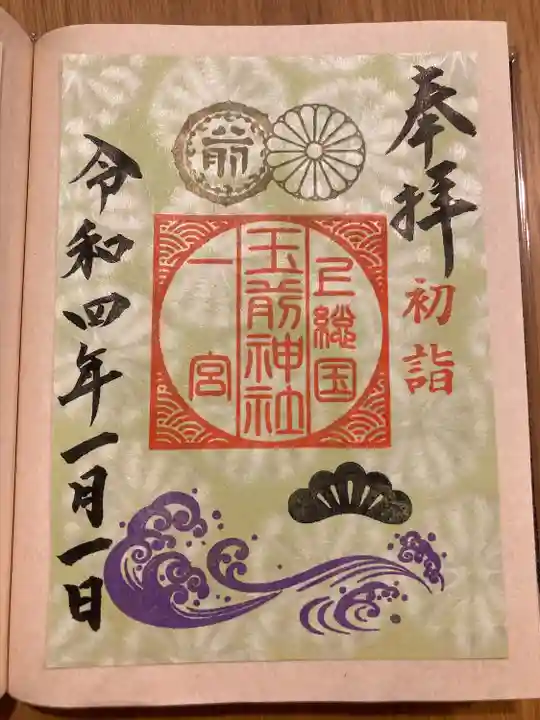 奉拝
初詣
前
上総国
玉前神社
一宮
令和四年一月一日